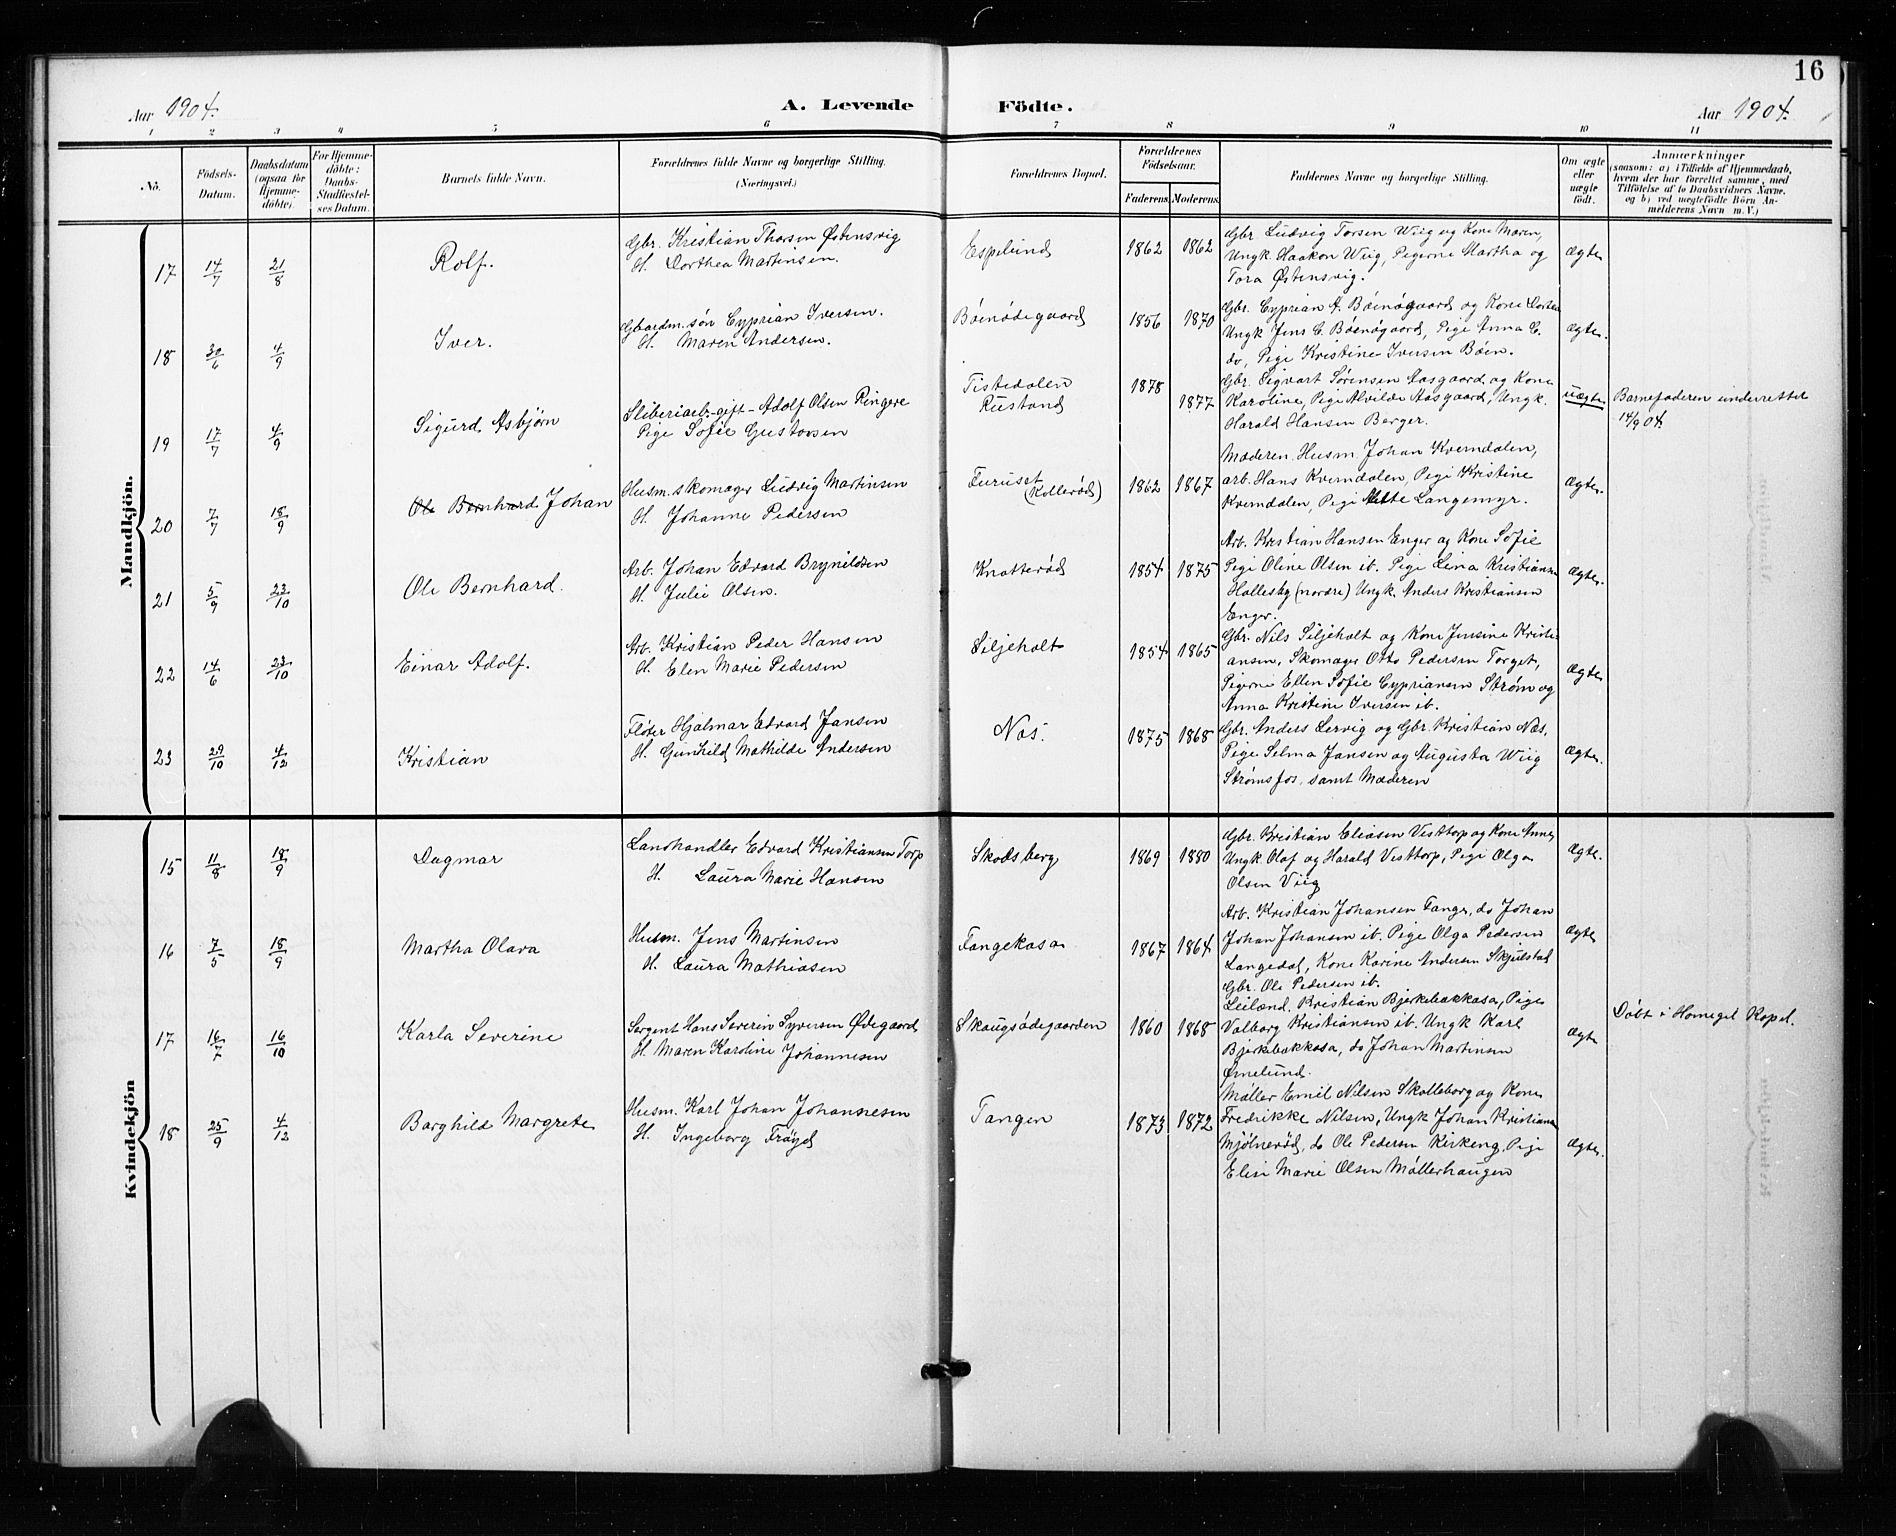 16
Aar 1904.
A. Levende Födte.
Aar 1904.
1 2 3 4 5 6 7 8 9 10 11
No.
Födsels-Datum.
Daabsdatum (ogsaa for Hjemme-döbte).
For Hjemme-döbte: Daabs-Stadfæstel-ses Datum.
Barnets fulde Navn.
Forældrenes fulde Navne og borgerlige Stilling.
(Næringsvei.)
Forældrenes Bopæl.
Forældrenes Födselsaar.
Faderens. Moderens.
Faddernes Navne og borgerlige Stilling.
Om ægte eller uægte födt.
Anmærkninger
(saasom: a) i Tilfælde af Hjemmedaab,
hvem der har forrettet samme, med
Tilföielse af to Daabsvidners Navne,
og b) ved uægtefödte Börn An-
melderens Navn m. V.)
Mandkjön.
17 14/7 21/8 Rolf.
Gbr. Kristian Thorsen Østensvig
H. Dorthea Martinsen.
Espelund 1862 1862
Gbr Ludvig Torsen Wiig og Kone Maren,
Ungk. Haakon Wiig, Pigerne Martha og
Tora Østensvig.
Ægte
18 30/6 4/9 Iver.
Gbardm. søn Cyprian Iversen.
H. Maren Andersen.
Bøenødegaard 1856 1870
Gbr. Cyprian A. Bøenøgaard og Kone Dorthea
Ungk Jens C. Bøenøgaard, Pige Anna C.
do, Pige Kristine Iversen Bøen.
Ægte.
19 17/7 4/9 Sigurd Asbjørn
Sliberiarb.-gift-Adolf Olsen Ringere
Pige Sofie Gustavsen
Tistedalen
Rustand
1878
1877
Gbr. Sigvart Sørensen Aasgaard og Kone
Karoline, Pige Alvilde Aasgaard, Ungk.
Harald Hansen Berger.
uægte
Barnefaderen underrettet
14/9 04.
20 7/7 18/9 Ole Bernhard Johan
Husm. skomager Ludvig Martinsen
H. Johanne Pedersen
Furuset
(Kollerød)
1862 1867
Moderen, Husm Johan Kverndalen,
arb. Hans Kverndalen, Pige Kristine
Kverndalen, Pige Mette Langemyr.
Ægte.
21 5/9 23/10 Ole Bernhard.
Arb. Johan Edvard Brynildsen
H. Julie Olsen.
Knatterød 1854 1875
Arb. Kristian Hansen Enger og Kone Sofie
Pige Oline Olsen ib. Pige Lina Kristiansen
Hollesby (nordre) Ungk. Anders Kristiansen
Enger.
Ægte.
22 14/6 23/10 Einar Adolf.
Arb. Kristian Peder Hansen
H. Elen Marie Pedersen
Siljeholt 1854 1865
Gbr. Nils Siljeholt og Kone Jensine Kristi-
ansen, Skomager Otto Pedersen Torget,
Pigerne Ellen Sofie Cypriansen Strøm og
Anna Kristine Iversen ib.
Ægte
23 29/10 4/12 Kristian
Fløter Hjalmar Edvard Jansen
H. Gunhild Mathilde Andersen
Nas. 1875 1868
Gbr. Anders Lervig og Gbr. Kristian Næs,
Pige Selma Jansen og Augusta Wiig
Strømsfos, samt Moderen
Ægte.
Kvindekjön
15 11/8 18/9 Dagmar
Landhandler Edvard Kristiansen Torp
H. Laura Marie Hansen
Skodsberg 1869 1880
Gbr. Kristian Eliasen Vesttorp og Kone Anne,
Ungk Olaf og Harald Vesttorp, Pige Olga
Olsen Viig
Ægte.
16 7/5 18/9 Martha Olava
Husm. Jens Martinsen
H. Laura Mathiasen
Tangekasa 1867 1864
Arb. Kristian Johansen Tange, do Johan
Johan Johansen ib. Pige Olga Pedersen
Langedal, Kone Karine Andersen Skjulstad
Gbr. Ole Pedersen ib.
Ægte
17 16/7 16/10 Karla Severine
Sergent Hans Severin Syversen Ødegaard
H. Maren Karoline Johannesen
Skaugsødegaarden 1860 1868
Leiland. Kristian Bjerkebakkasa, Pige
Valborg Kristiansen ib. Ungk Karl
Bjerkebakkasa, do Johan Martinsen
Ørnelund.
Ægte
Døbt i Hornegel Kapel.
18 25/9 4/12 Borghild Margrete
Husm. Karl Johan Johannesen
H. Ingeborg Frøyd
Tangen 1873 1872
Møller Emil Nilsen Skolleborg og Kone
Fredrikke Nilsen, Ungk Johan Kristiansen
Mjølnerød, do Ole Pedersen Kirkeng, Pige
Elise Marie Olsen Møllerhaugen
Ægte.